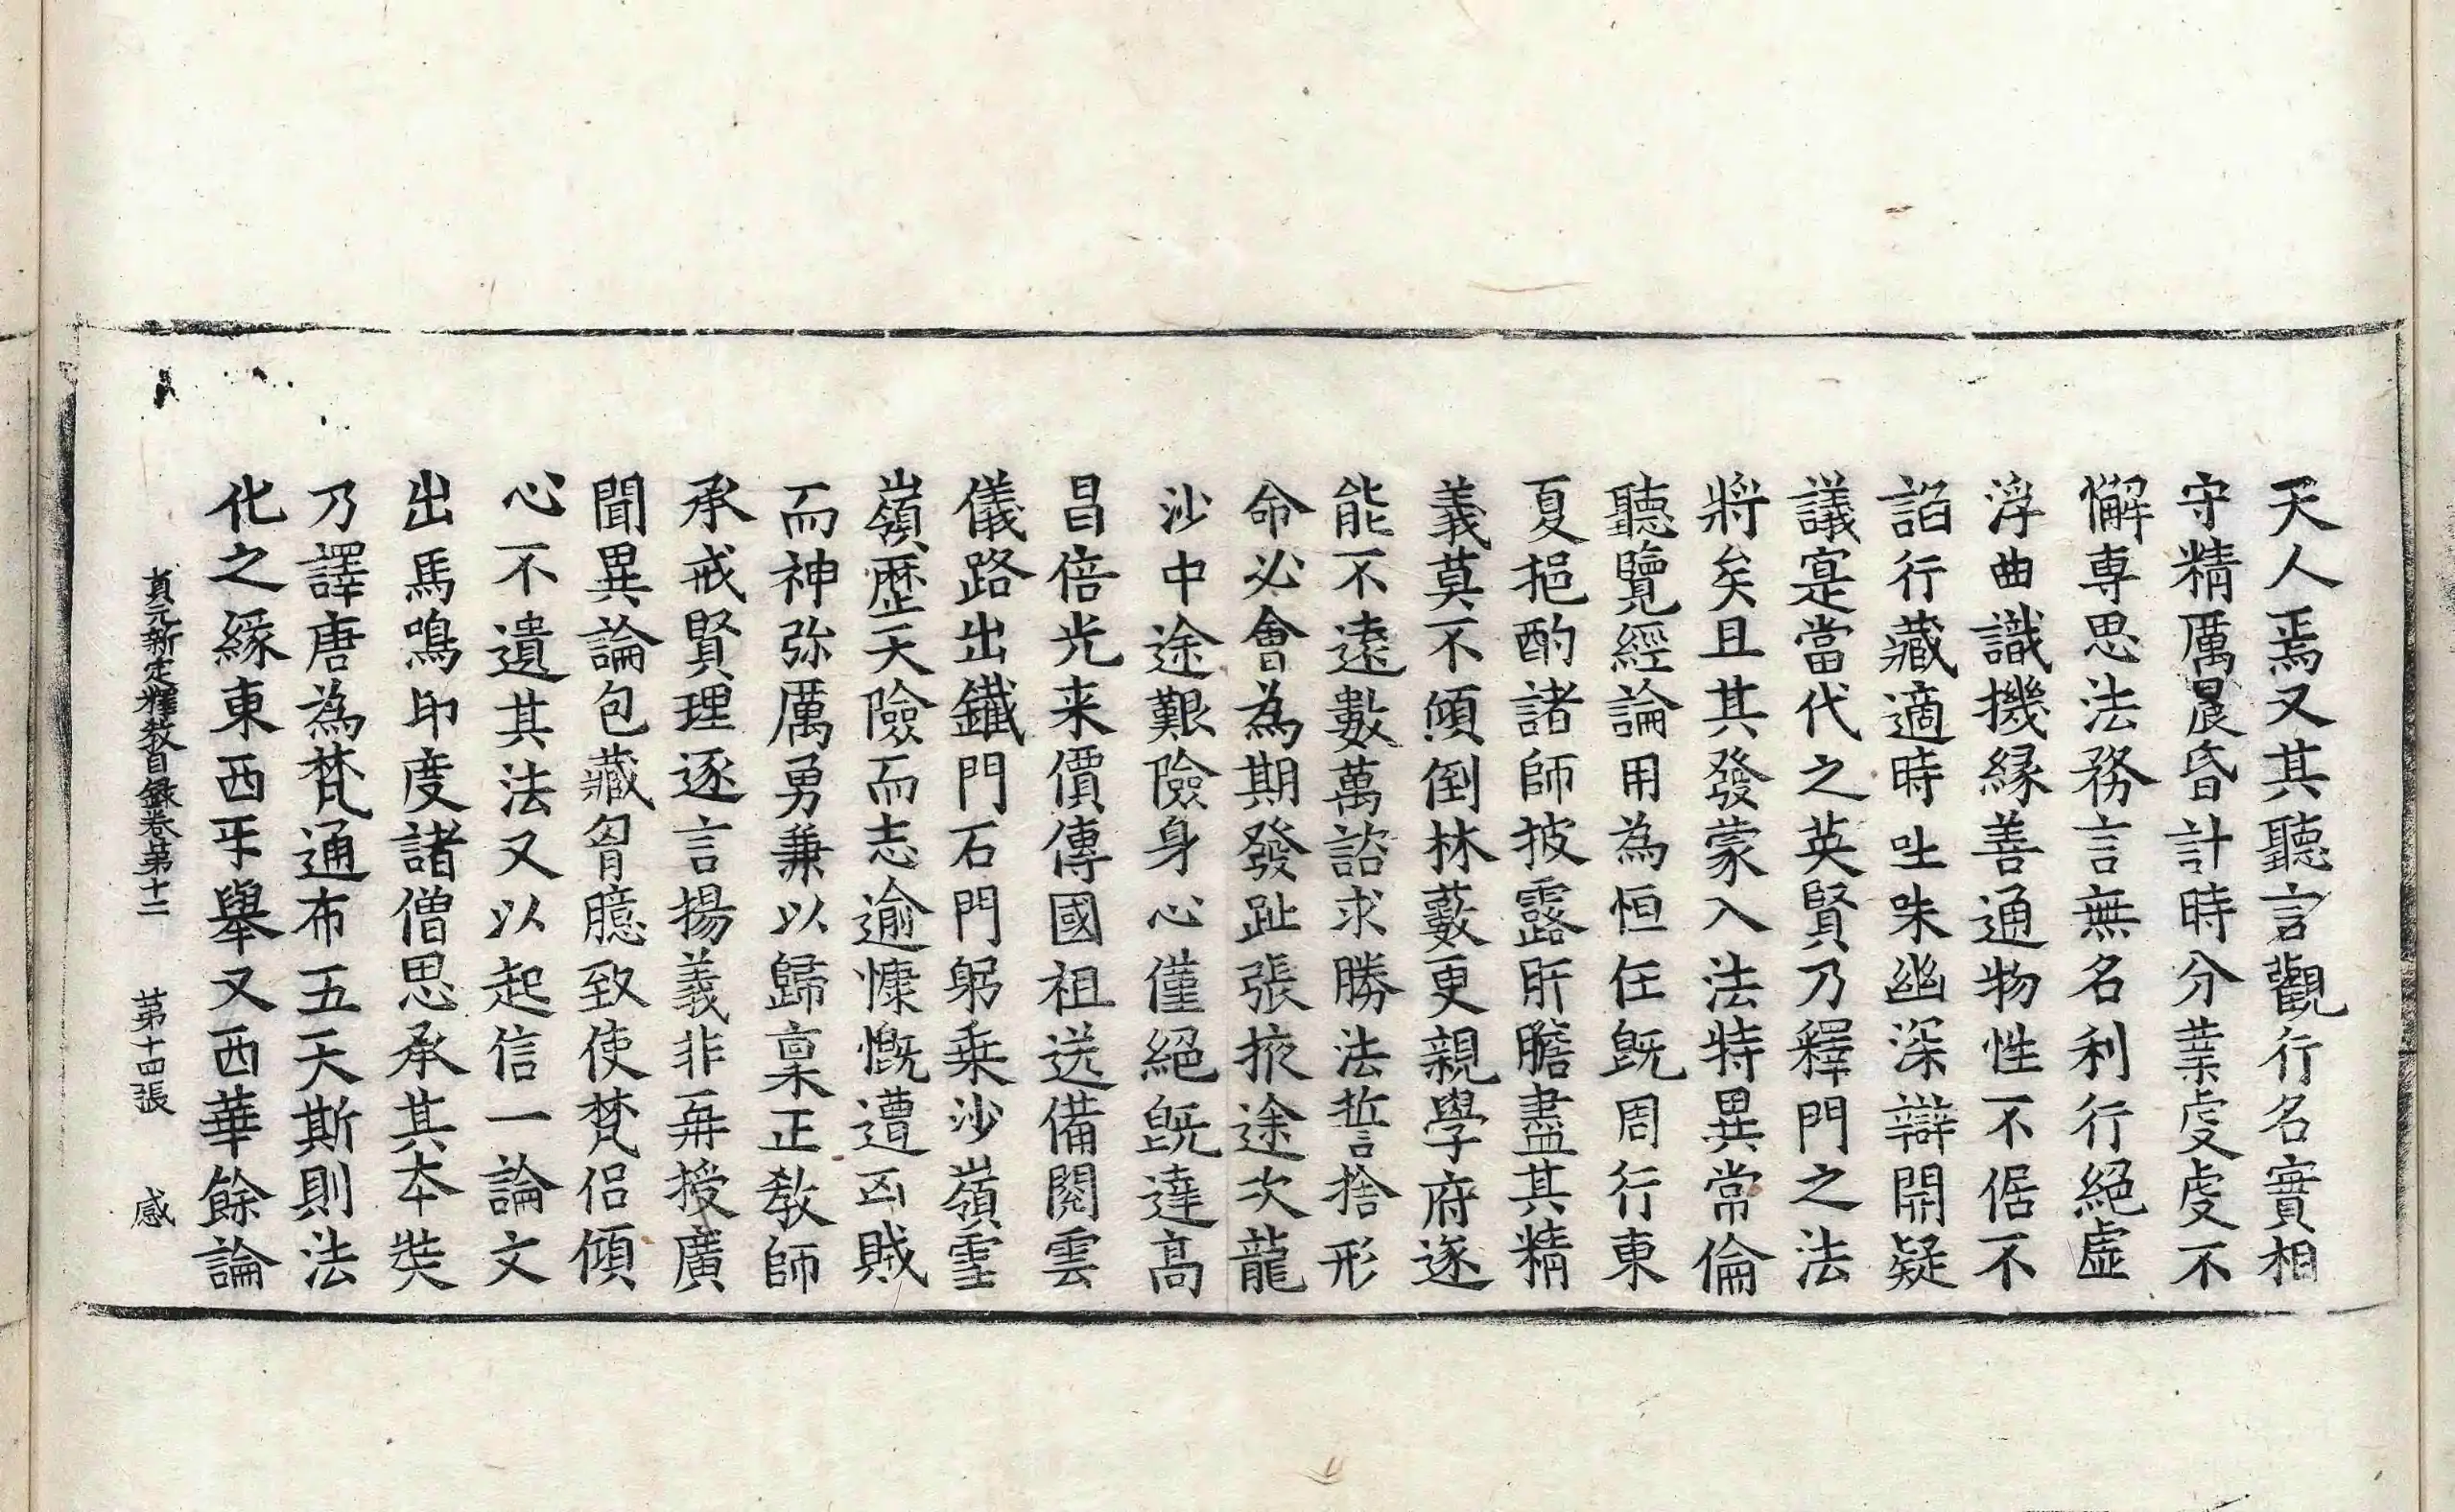 天人焉又其聽言觀行名實相
守精厲晨昏計時分業虔虔不
懈専思法務言無名利行絕虛
浮曲識機緣善通物性不倨不
諂行藏適時吐味幽深辯開疑
議寔當代之英賢乃釋門之法
將矣且其發蒙入法特異常倫
聽覽經論用為恒任旣周行東
夏挹酌諸師披露肝膽盡其精
義莫不傾倒林藪更親學府遂
能不遠數萬諮求勝法誓捨形
命必會為期發趾張掖途次龍
沙中途艱險身心僅絕旣達高
昌倍光来價傳國祖送備閱雲
儀路出鐵門石門躬乗沙嶺雪
嶺歷天險而志逾慷慨遭凶賊
而神弥厲勇兼以歸稟正教師
承戒賢理逐言揚義非再授廣
聞異論包藏匈臆致使梵侶傾
心不遺其法又以起信一論文
出馬鳴印度諸僧思承其本奘
乃譯唐為梵通布五天斯則法
化之緣東西乎舉又西華餘論
貞元新定釋教目錄卷第十二　第十四張　感